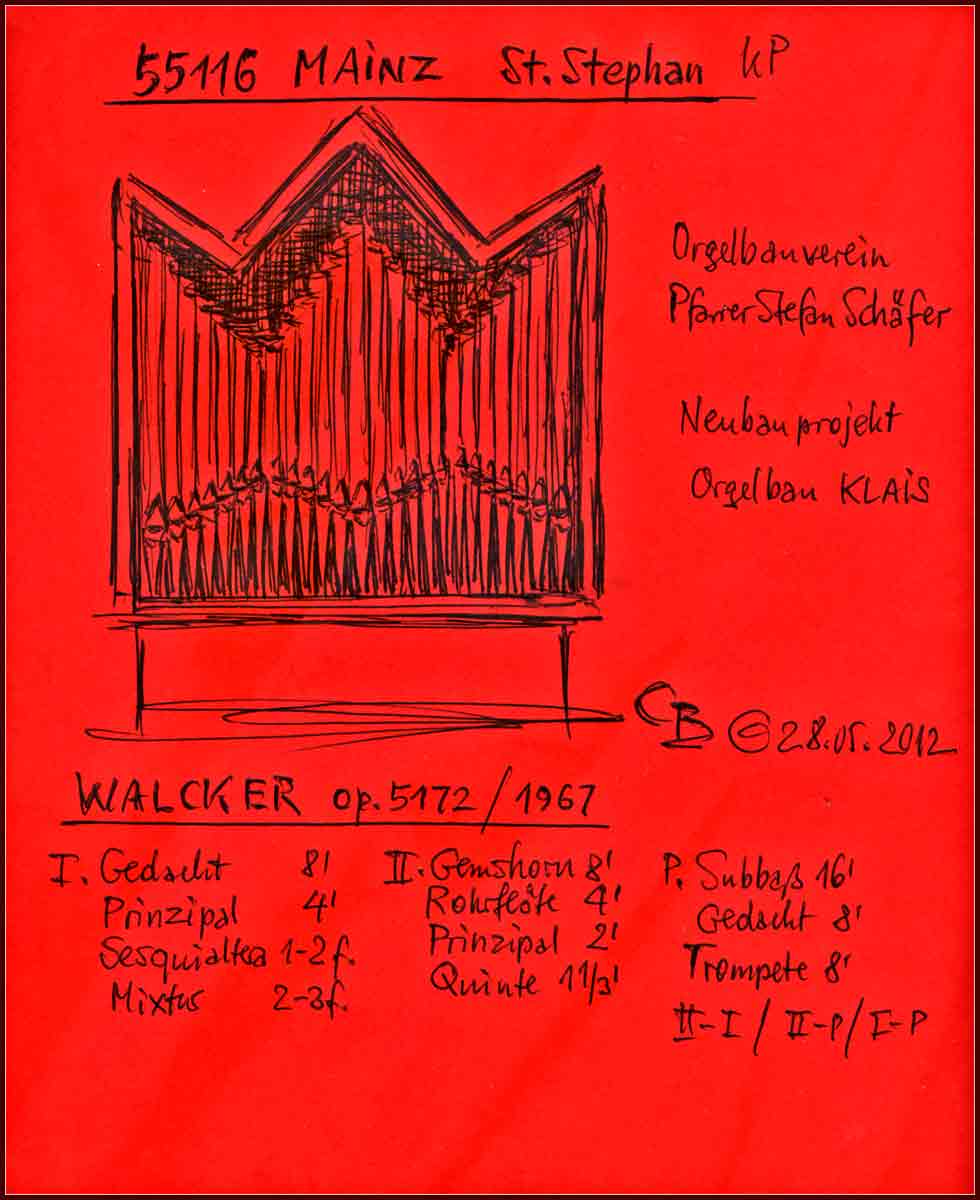 55116 MAINZ St. Stephan kP
Orgelbauverein
Pfarrer Stefan Schäfer
Neubauprojekt
Orgelbau KLAIS
CB © 28.05.2012
WALCKER op. 5172 / 1967
I. Gedackt 8' II. Gemshorn 8' P. Subbaß 16'
Prinzipal 4' Rohrflöte 4' Gedackt 8'
Sesquialtera 1-2f. Prinzipal 2' Trompete 8'
Mixtur 2-3f. Quinte 1 1/3' II-I / II-P / I-P